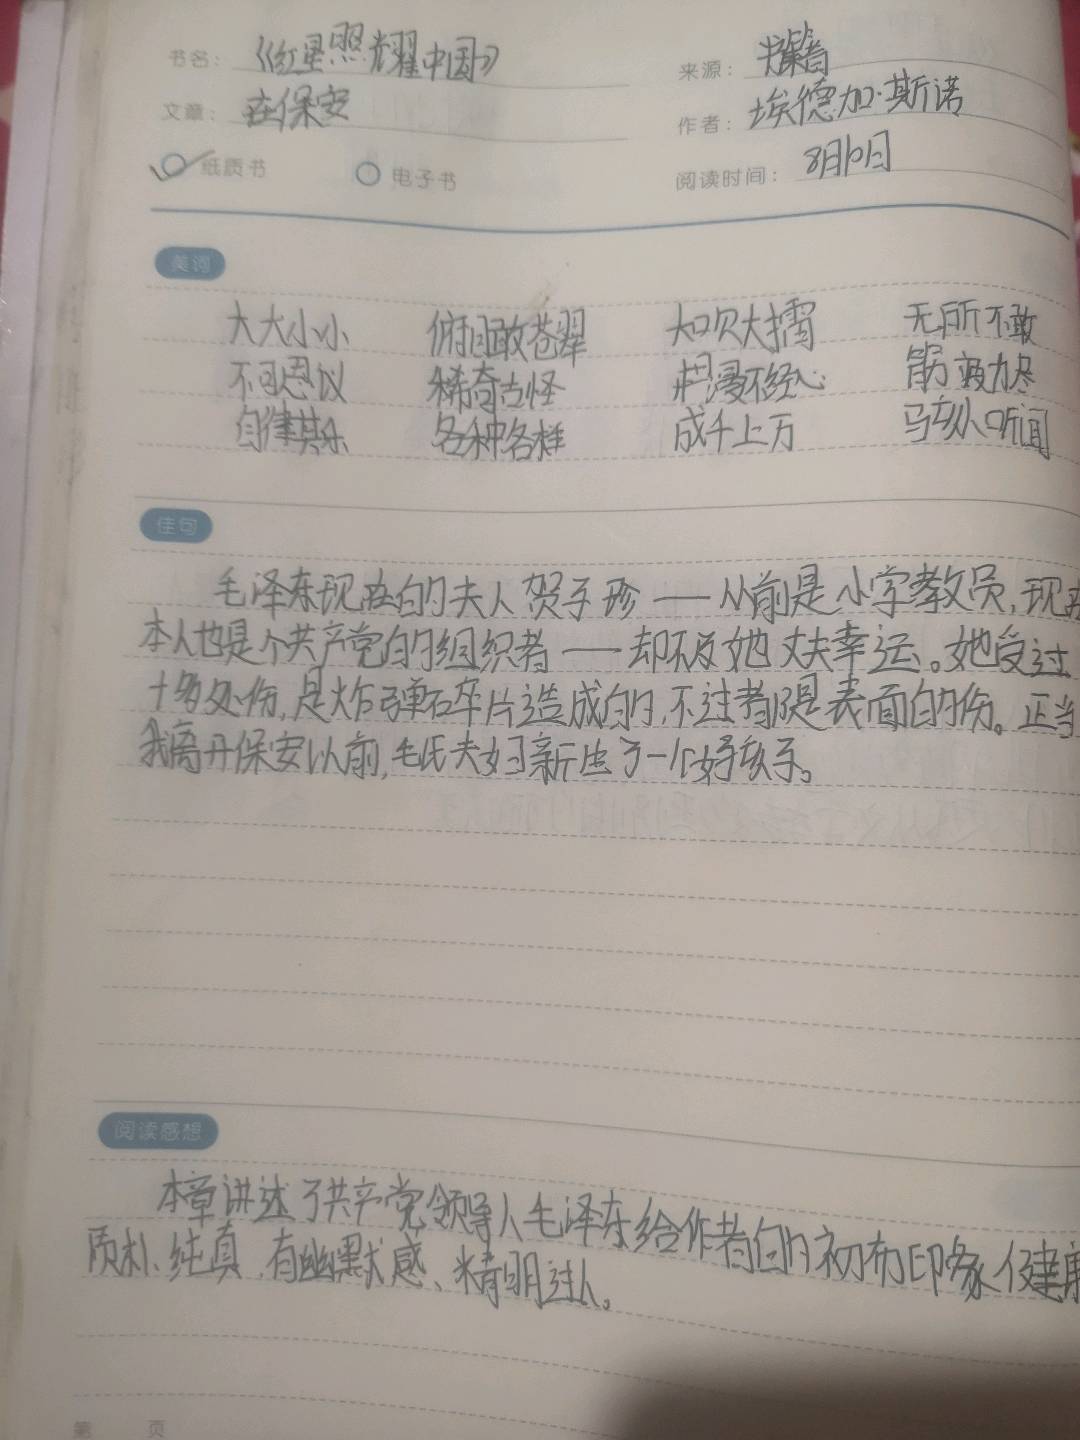 书名：《红星照耀中国》
来源：
文章：在保安
作者：埃德加·斯诺
纸质书 电子书
阅读时间：8月10日
美词
大大小小 俯瞰苍翠 大擂 无所不敢
不可思议 稀奇古怪 漫不经心 筋疲力尽
自律其乐 各种各样 成千上万 骇人听闻
佳句
毛泽东现在的夫人贺子珍——从前是小学教员，现在
本人也是个共产党的组织者——却不及她丈夫幸运。她受过
十多处伤，是炸弹碎片造成的，不过都是表面的伤。正当
我离开保安以前，毛氏夫妇新生了一个好孩子。
阅读感想
本章讲述了共产党领导人毛泽东给作者的初步印象健康
质朴、纯真，有幽默感、精明过人。
第 页